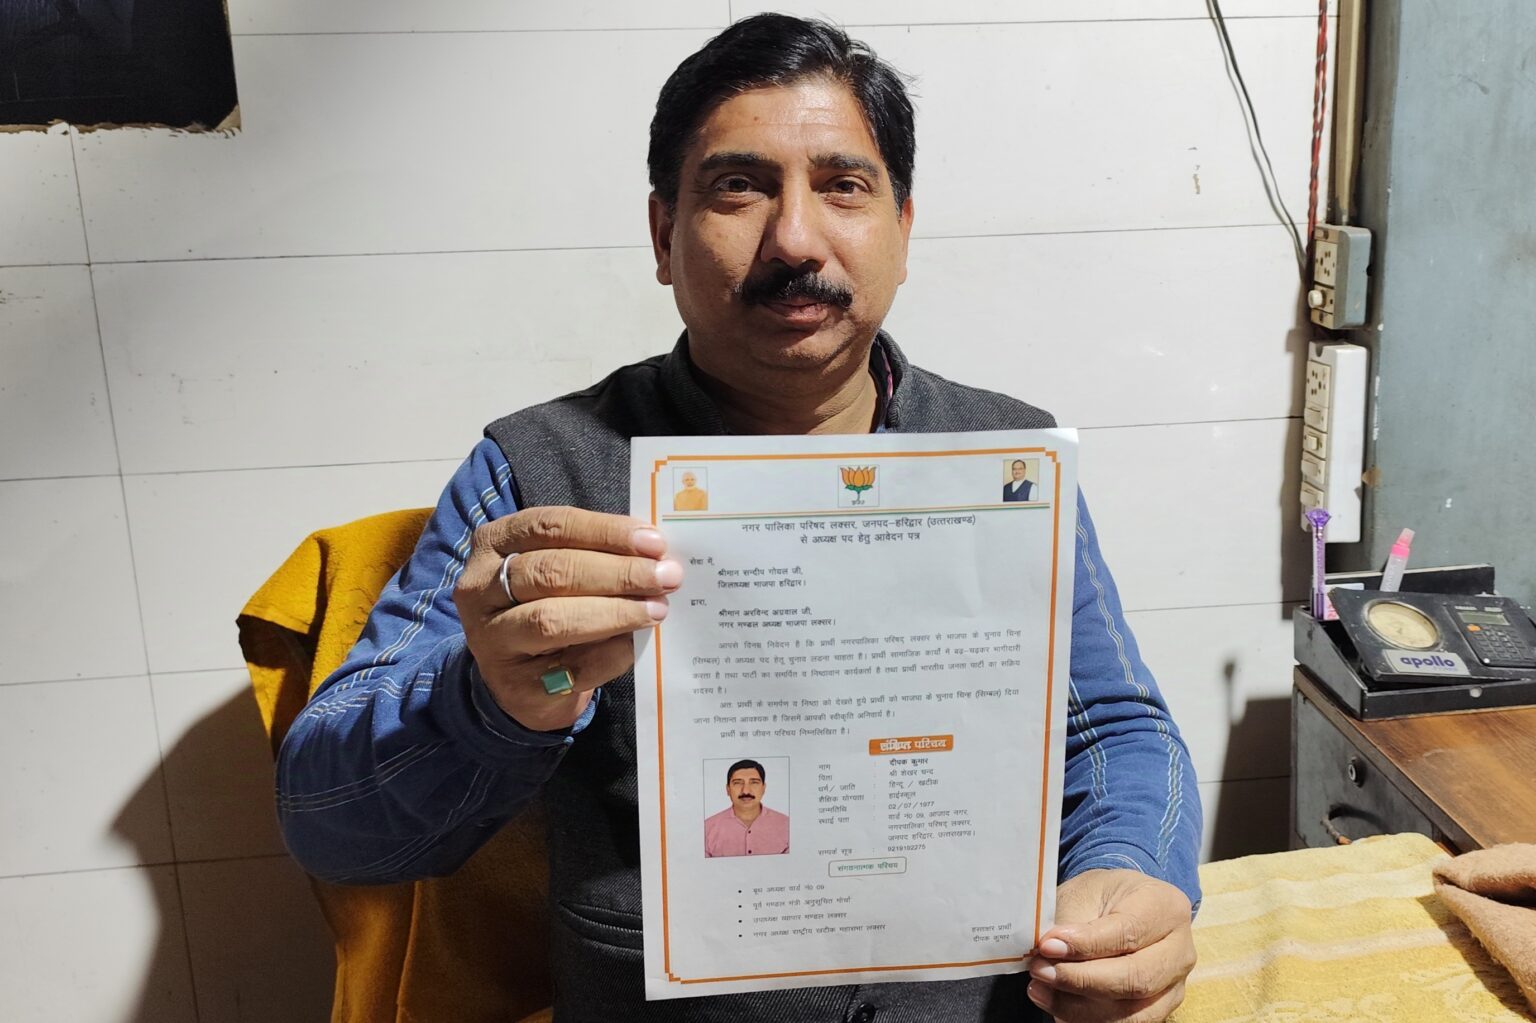 भाजपा
नगर पालिका परिषद लक्सर, जनपद–हरिद्वार (उत्तराखण्ड)
से अध्यक्ष पद हेतु आवेदन पत्र
सेवा में,
श्रीमान सन्दीप गोयल जी,
जिलाध्यक्ष भाजपा हरिद्वार।
द्वारा,
श्रीमान अरविन्द अग्रवाल जी,
नगर मण्डल अध्यक्ष भाजपा लक्सर।
आपसे विनम्र निवेदन है कि प्रार्थी नगरपालिका परिषद् लक्सर से भाजपा के चुनाव चिन्ह
(सिम्बल) से अध्यक्ष पद हेतु चुनाव लडना चाहता है। प्रार्थी सामाजिक कार्यों मे बढ़–चढ़कर भागीदारी
करता है तथा पार्टी का समर्पित व निष्ठावान कार्यकर्ता है तथा प्रार्थी भारतीय जनता पार्टी का सक्रिय
सदस्य है।
अतः प्रार्थी के समर्पण व निष्ठा को देखते हुये प्रार्थी को भाजपा के चुनाव चिन्ह (सिम्बल) दिया
जाना नितान्त आवश्यक है जिसमें आपकी स्वीकृति अनिवार्य है।
प्रार्थी का जीवन परिचय निम्नलिखित है।
संक्षिप्त परिचय
नाम : दीपक कुमार
पिता : श्री शेखर चन्द
धर्म/ जाति : हिन्दू / खटीक
शैक्षिक योग्यता : हाईस्कूल
जन्मतिथि : 02/07/1977
स्थाई पता : वार्ड नं0 09, आजाद नगर,
नगरपालिका परिषद् लक्सर,
जनपद हरिद्वार, उत्तराखण्ड।
सम्पर्क सूत्र : 9219192275
संगठनात्मक परिचय
• बूथ अध्यक्ष वार्ड नं0 09
• पूर्व मण्डल मंत्री अनुसूचित मोर्चा
• उपाध्यक्ष व्यापार मण्डल लक्सर
• नगर अध्यक्ष राष्ट्रीय खटीक महासभा लक्सर
हस्ताक्षर प्रार्थी
दीपक कुमार
apollo